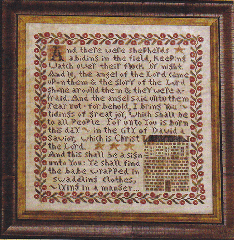 And there were shepherds
abiding in the field, Keeping
Watch over their flock by night.
And lo, the angel of the Lord came
upon them & the glory of the Lord
shone around them & they were a-
fraid. And the angel said unto them
Fear not - for behold, I bring you
tidings of great joy, Which shall be
to all People. For unto You is born
this day ~ in the City of David a
Savior, which is Christ
the Lord.
And this shall be a sign
unto You: Ye shall find
the babe wrapped in
swaddling clothes,
~ lying in a manger...